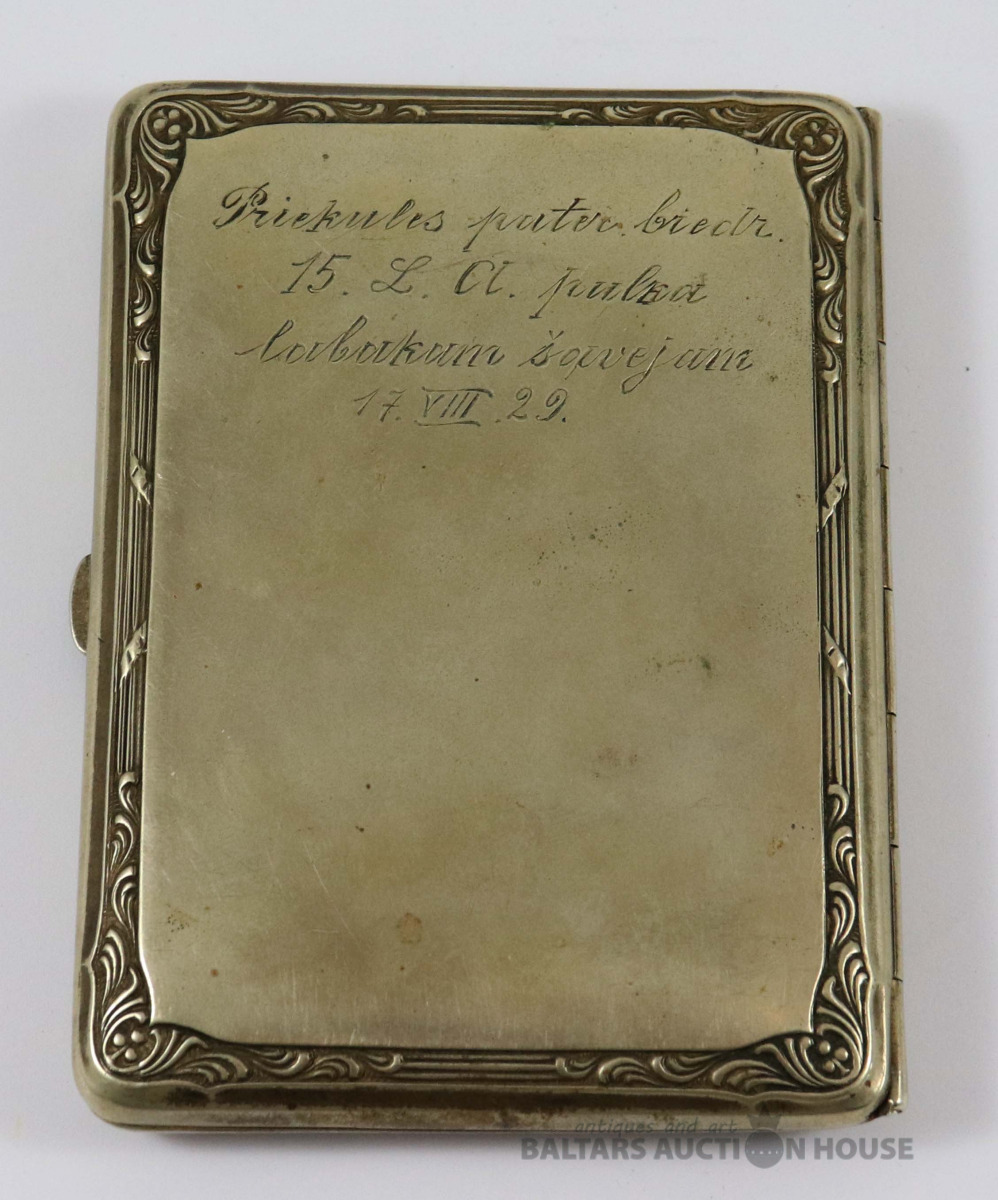 Priekules pater. biedr.
15. L. A. pulka
labakam šavejam
17. VIII. 29.
antiques and art
BALTARS AUCTION HOUSE